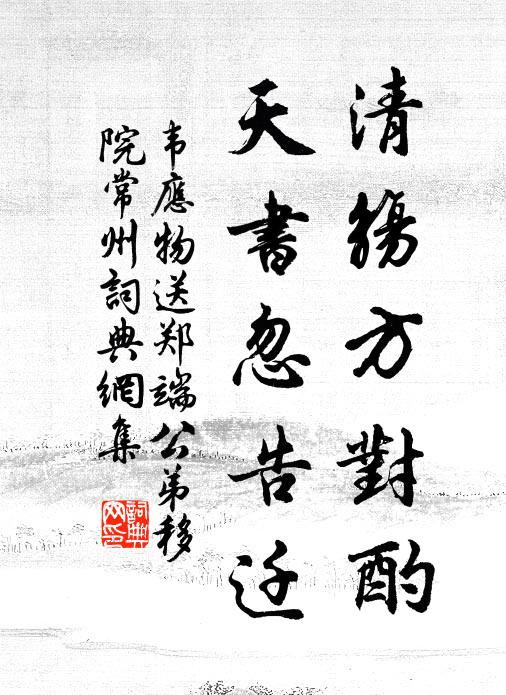 清觴方對酌
天書忽告迁
韦應物送郑端公弟移
院常州詞典網集
詞典网印